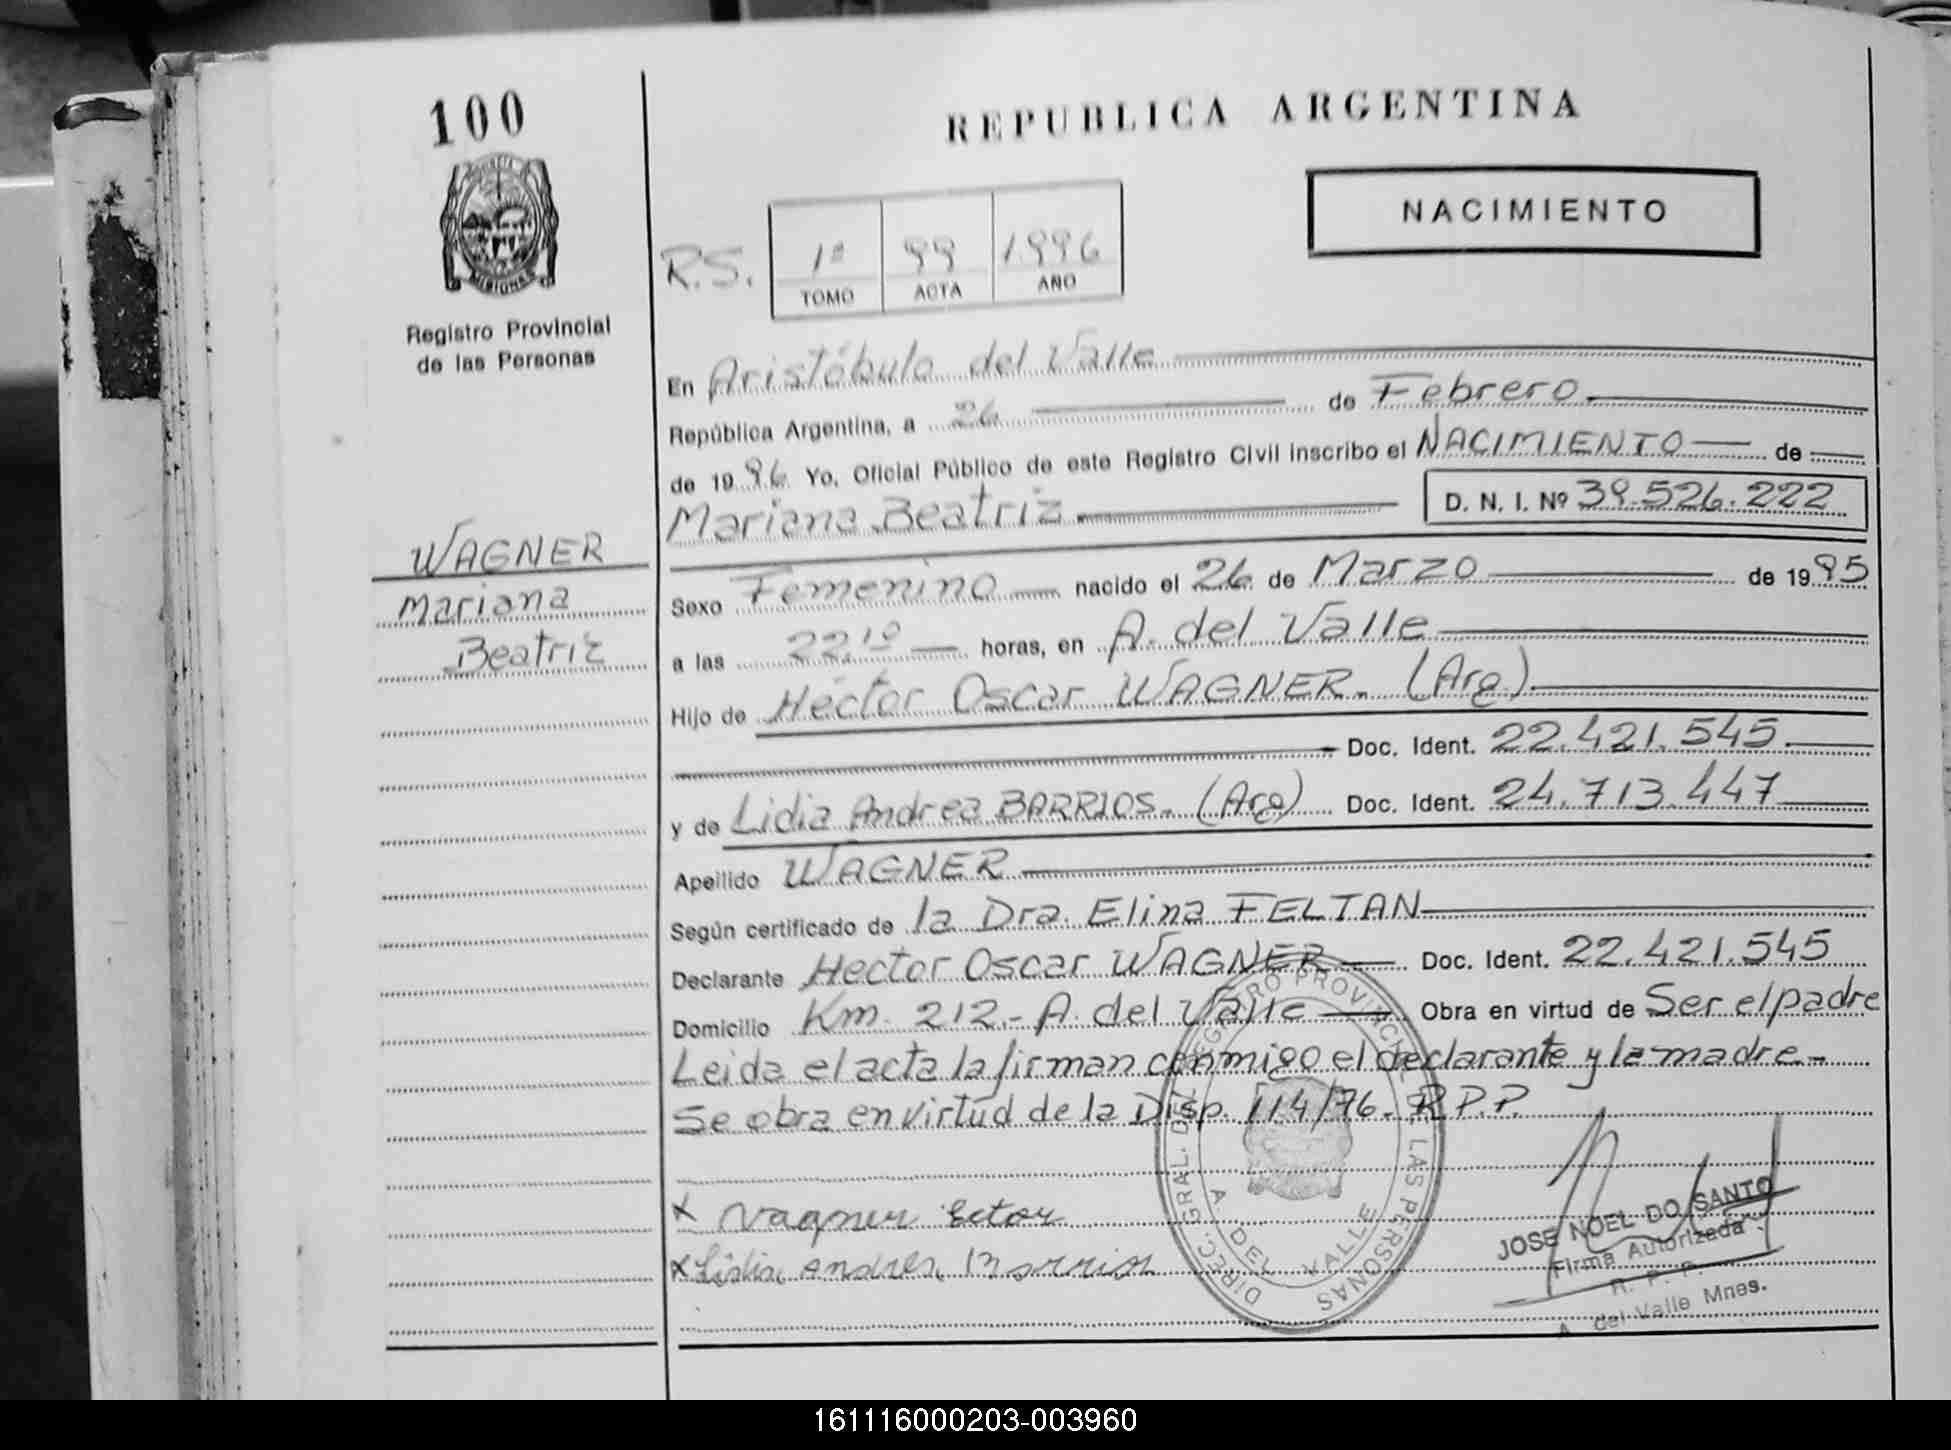 100
REPUBLICA ARGENTINA
MISIONES
Registro Provincial
de las Personas
NACIMIENTO
R.S.
1º 99 1996
TOMO ACTA AÑO
En Aristóbulo del Valle
República Argentina, a 26 de Febrero
de 1996 Yo, Oficial Público de este Registro Civil inscribo el NACIMIENTO de
Mariana Beatriz D. N. I. Nº 39.526.222
WAGNER
Mariana
Beatriz
Sexo Femenino nacido el 26 de Marzo de 1995
a las 22,10 horas, en A. del Valle
Hijo de Héctor Oscar WAGNER. (Arg)
Doc. Ident. 22.421.545
y de Lidia Andrea BARRIOS. (Arg) Doc. Ident. 24.713.447
Apellido WAGNER
Según certificado de la Dra. Elina FELTAN
Declarante Hector Oscar WAGNER Doc. Ident. 22.421.545
Domicilio Km. 212.- A. del Valle Obra en virtud de Ser el padre
Leida el acta la firman conmigo el declarante y la madre.-
Se obra en virtud de la Disp. 114/76. R.P.P.
DIREC. GRAL. DEL REGISTRO PROVINCIAL DE LAS PERSONAS
A. DEL VALLE
x Vagner Ector
x Lidia Andrea Barrios
JOSE NOEL DO SANTO
Firma Autorizada
R. P. P.
A. del Valle Mnes.
161116000203-003960